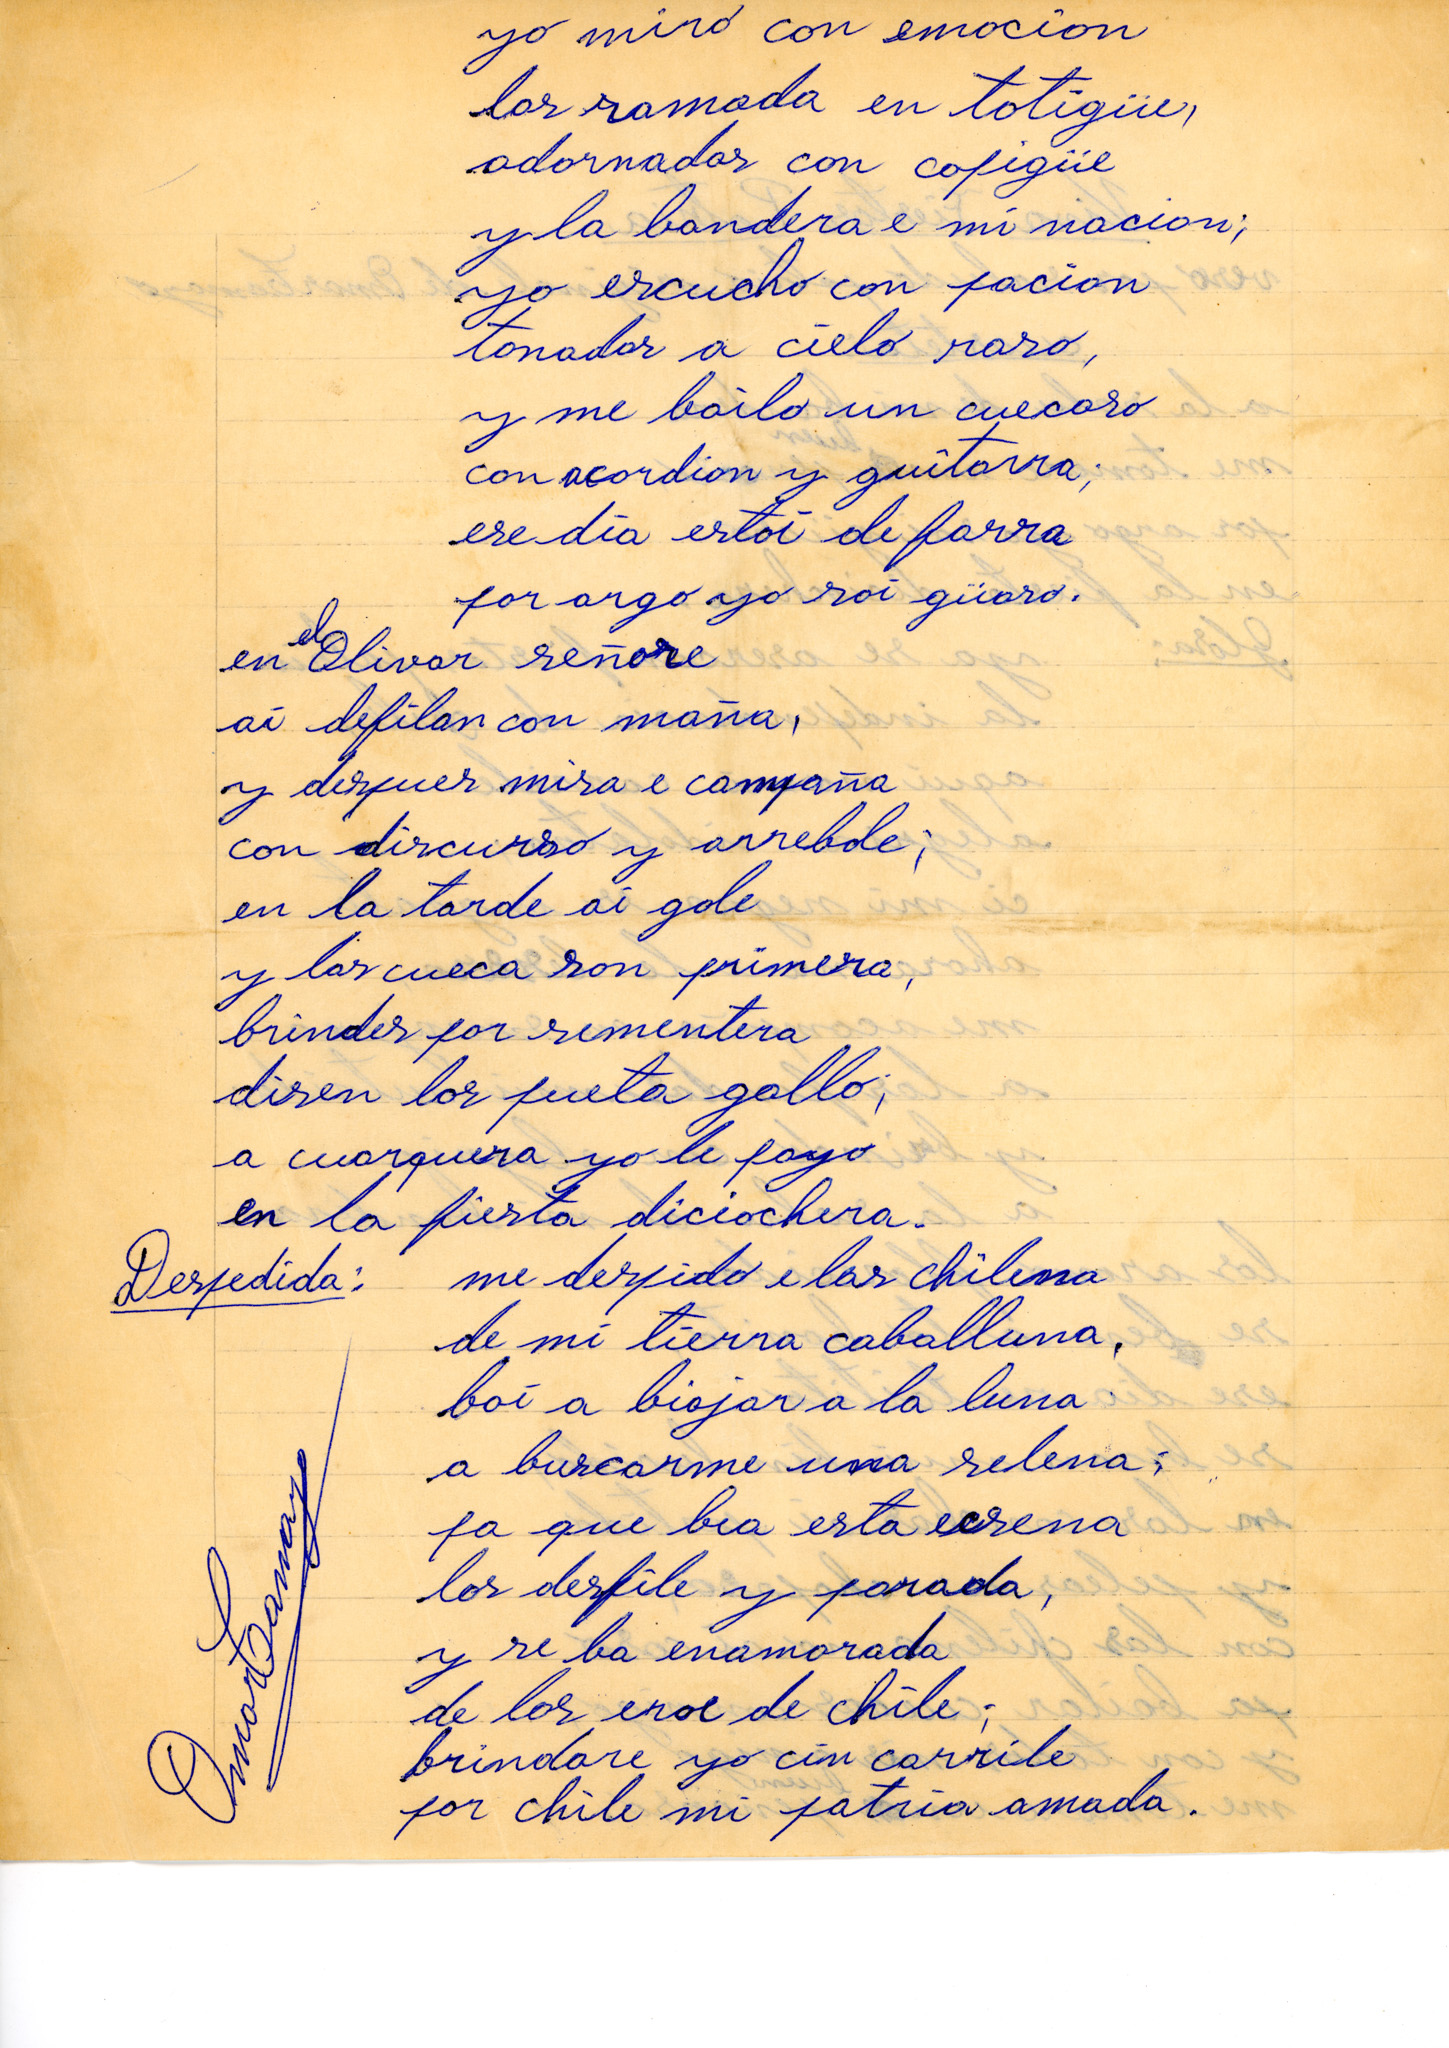 yo miro con emocion
las ramada en totigüe,
adornadas con copigüe
y la bandera e mi nacion;
yo escucho con pacion
tonadas a cielo raso,
y me bailo un cuecaso
con acordion y guitarra;
ese dia estoi de farra
por argo yo soi guaso.
en el Olivar señore
ai defilan con maña,
y despues misa e campaña
con discurso y arrebole;
en la tarde ai gole
y las cueca son primera,
brindes por sementera
disen los pueta gallo;
a cuarquera yo le payo
en la fiesta diciochera.
Despedida: me despido e las chilena
de mi tierra caballuna,
boi a biajar a la luna
a buscarme una selena;
pa que bea esta ecsena
los desfile y parada,
y se ba enamorada
de los eroe de chile;
brindare yo cin carrile
por chile mi patria amada.